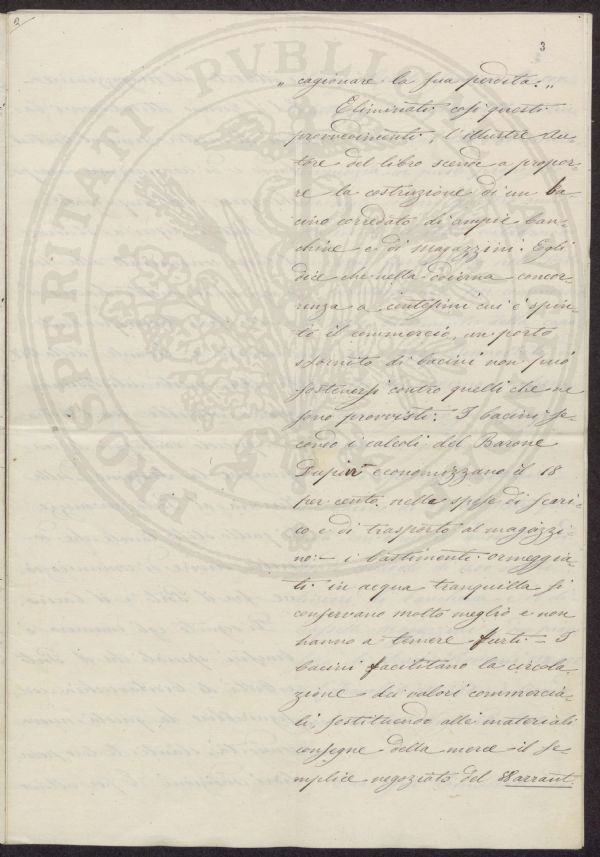 3
„ cagionare la sua perdita. „
Eliminati così questi
provvedimenti, l'illustre Au-
tore del libro scende a propor-
re la costruzione di un ba-
cino corredato di ampie ban-
chine e di magazzini. Egli
dice che nella odierna concor-
renza a centesimi cui è spin-
to il commercio, un porto
sfornito di bacini non può
sostenersi contro quelli che ne
sono provvisti. I bacini se-
condo i calcoli del Barone
Dupin economizzano il 18
per cento nelle spese di scari-
co e di trasporto al magazzi-
no: — i bastimenti ormeggia-
ti in acqua tranquilla si
conservano molto meglio e non
hanno a temere furti — I
bacini facilitano la circola-
zione dei valori commercia-
li, sostituendo alle materiali
consegne della merce il se-
mplice negoziato del Warrant.
PROSPERITATI PVBLIC